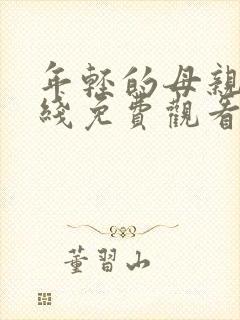 年轻的母親
綫免費觀看
董習山